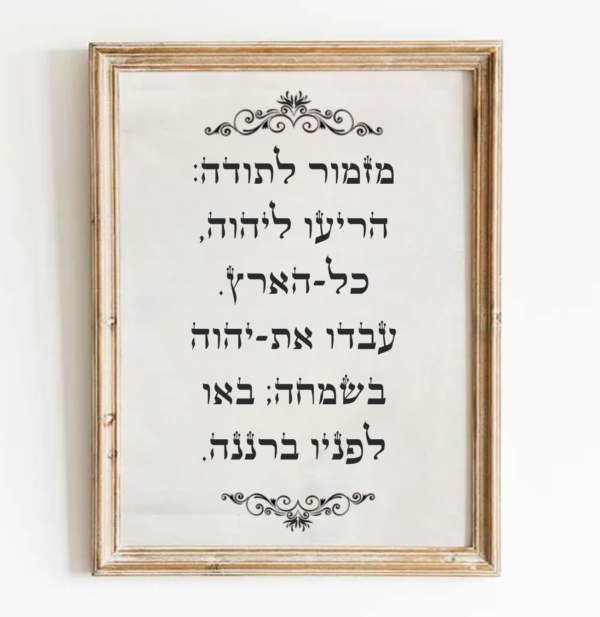 מזמור לתודה:
הריעו ליהוה,
כל-הארץ.
עבדו את-יהוה
בשמחה; באו
לפניו ברננה.